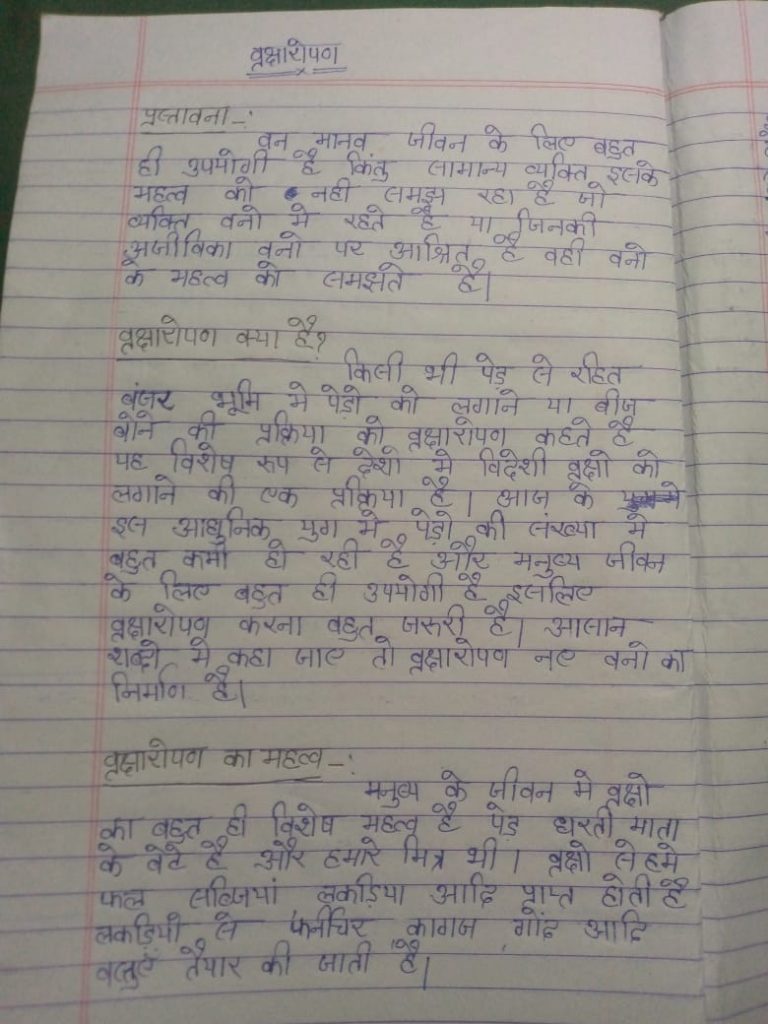 वृक्षारोपण
प्रस्तावना -:
वन मानव जीवन के लिए बहुत
ही उपयोगी है किंतु सामान्य व्यक्ति इसके
महत्व को नही समझ रहा है जो
व्यक्ति वनो मे रहते है या जिनकी
अजीविका वनो पर आश्रित है वही वनो
के महत्व को समझते है।
वृक्षारोपण क्या है?
किसी भी पेड़ से रहित
बंजर भूमि मे पेड़ो को लगाने या बीज
बोने की प्रक्रिया को वृक्षारोपण कहते है
यह विशेष रूप से देशो मे विदेशी वृक्षो को
लगाने की एक प्रक्रिया है। आज के
इस आधुनिक युग मे पेड़ो की संख्या मे
बहुत कमी हो रही है और मनुष्य जीवन
के लिए बहुत ही उपयोगी है इसलिए
वृक्षारोपण करना बहुत जरुरी है। आसान
शब्दो मे कहा जाए तो वृक्षारोपण नए वनो का
निर्माण है।
वृक्षारोपण का महत्व -:
मनुष्य के जीवन मे वृक्षो
का बहुत ही विशेष महत्व है पेड़ धरती माता
के बेटे है और हमारे मित्र भी। वृक्षो से हमे
फल सब्जियां लकड़िया आदि प्राप्त होती है
लकड़ियो से फर्नीचर कागज गोंद आदि
वस्तुएं तैयार की जाती है।